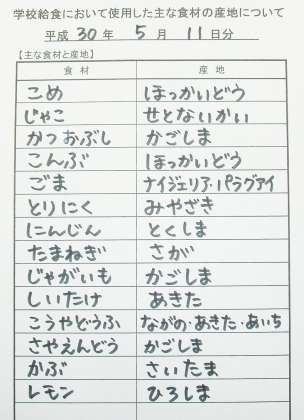 学校給食において使用した主な食材の産地について
平成 30 年 5 月 11 日分
【主な食材と産地】
食材 産地
こめ ほっかいどう
じゃこ せとないかい
かつおぶし かごしま
こんぶ ほっかいどう
ごま ナイジェリア・パラグアイ
とりにく みやざき
にんじん とくしま
たまねぎ さが
じゃがいも かごしま
しいたけ あきた
こうやどうふ ながの・あきた・あいち
さやえんどう かごしま
かぶ さいたま
レモン ひろしま